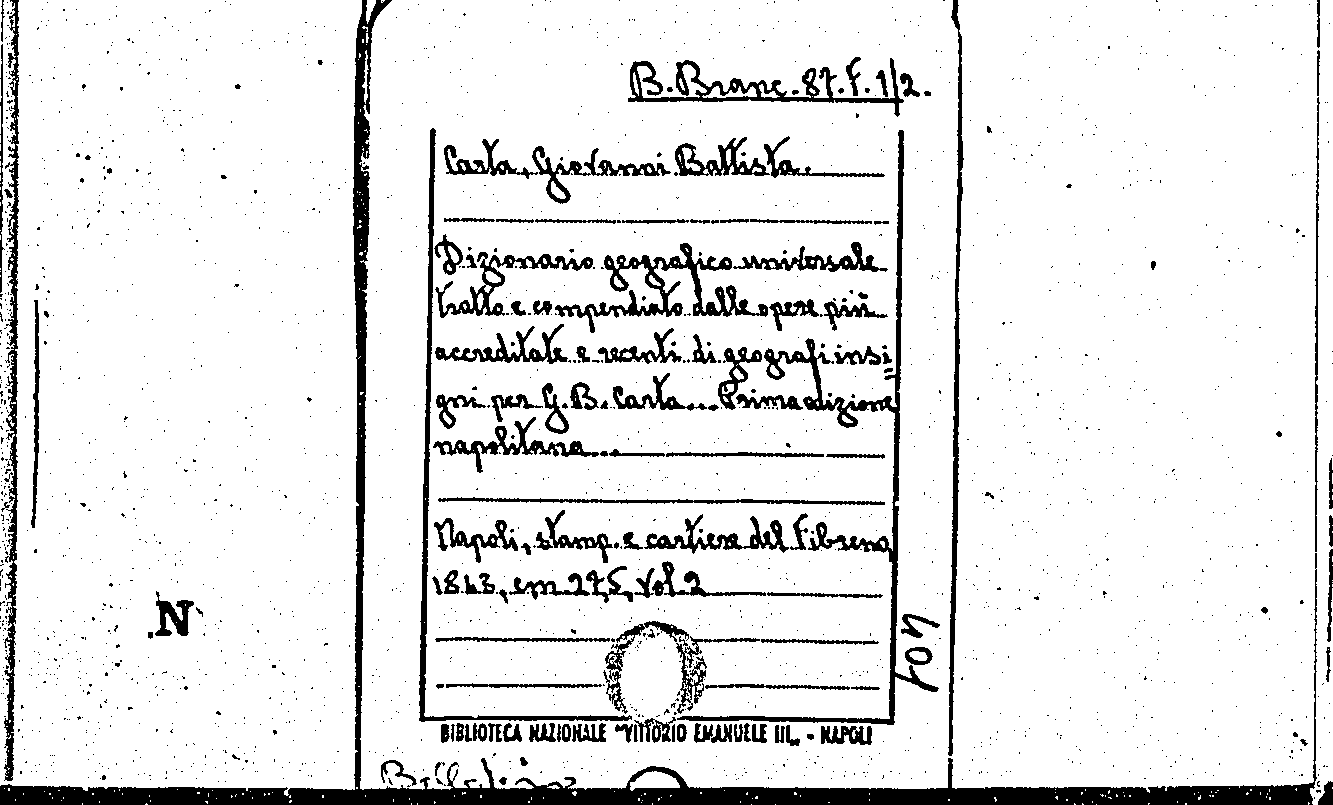 B. Branc. 87. F. 1/2.
Carta, Giovanni Battista.
Dizionario geografico universale
tratto e compendiato dalle opere più
accreditate e recenti di geografi insi=
gni per G. B. Carta... Prima edizione
napolitana...
Napoli, stamp. e cartiere del Fibreno,
1843, cm. 27,5, vol. 2
404
N
BIBLIOTECA NAZIONALE "VITTORIO EMANUELE III„ - NAPOLI